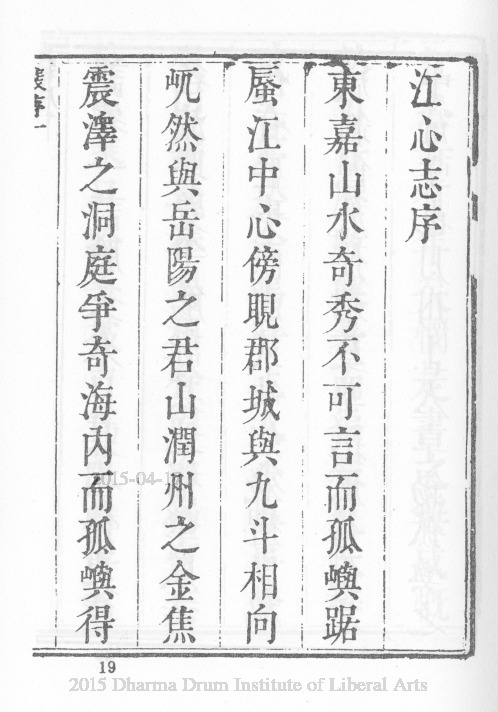 江心志序
東嘉山水奇秀不可言而孤嶼踞
蜃江中心傍睨郡城與九斗相向
屼然與岳陽之君山潤州之金焦
震澤之洞庭爭奇海內而孤嶼得
序一
19
2015-04-1
2015 Dharma Drum Institute of Liberal Arts